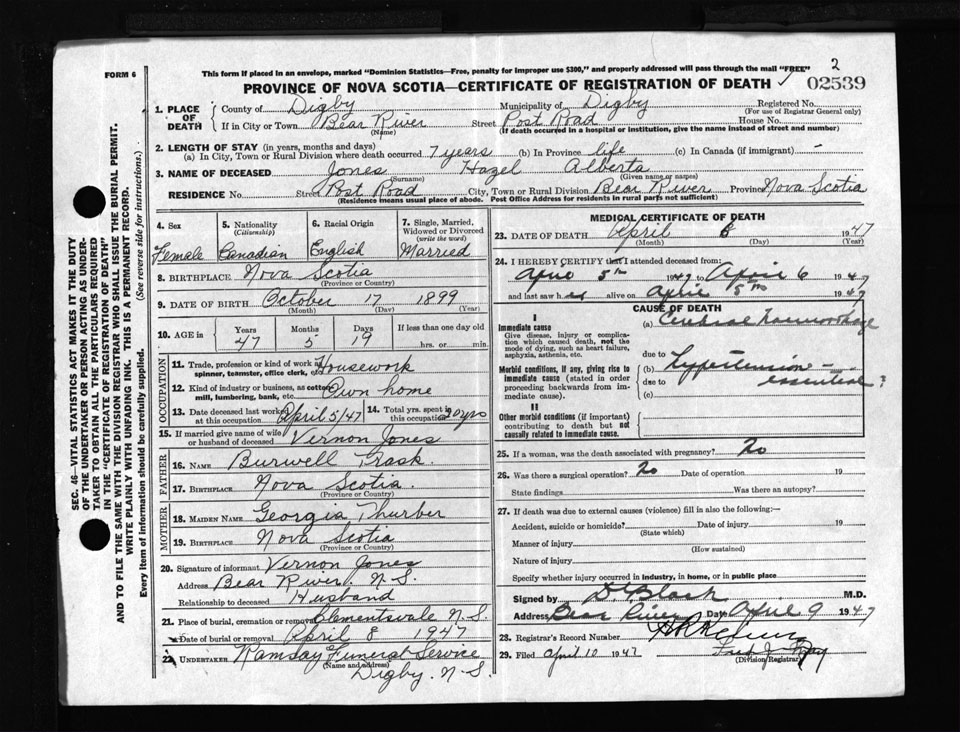 FORM 6
This form if placed in an envelope, marked "Dominion Statistics—Free, penalty for improper use $300," and properly addressed will pass through the mail "FREE"
2
PROVINCE OF NOVA SCOTIA—CERTIFICATE OF REGISTRATION OF DEATH
02539
SEC. 46—VITAL STATISTICS ACT MAKES IT THE DUTY
OF THE UNDERTAKER OR PERSON ACTING AS UNDER-
TAKER TO OBTAIN ALL THE PARTICULARS REQUIRED
IN THE "CERTIFICATE OF REGISTRATION OF DEATH"
AND TO FILE THE SAME WITH THE DIVISION REGISTRAR WHO SHALL ISSUE THE BURIAL PERMIT.
WRITE PLAINLY WITH UNFADING INK. THIS IS A PERMANENT RECORD.
Every item of information should be carefully supplied. (See reverse side for instructions.)
1. PLACE OF DEATH
County of Digby Municipality of Digby Registered No.
(For use of Registrar General only)
If in City or Town Bear River Street Post Road House No.
(Name) (If death occurred in a hospital or institution, give the name instead of street and number)
2. LENGTH OF STAY (in years, months and days)
(a) In City, Town or Rural Division where death occurred 7 years (b) In Province life (c) In Canada (if immigrant) —
3. NAME OF DECEASED Jones Hazel Alberta
(Surname) (Given name or names)
RESIDENCE No. Street Post Road City, Town or Rural Division Bear River Province Nova Scotia
(Residence means usual place of abode. Post Office Address for residents in rural parts not sufficient)
4. Sex 5. Nationality (Citizenship) 6. Racial Origin 7. Single, Married, Widowed or Divorced (write the word)
Female Canadian English Married
8. BIRTHPLACE Nova Scotia
(Province or Country)
9. DATE OF BIRTH October 17 1899
(Month) (Day) (Year)
10. AGE in Years Months Days If less than one day old
47 5 19 hrs. or min.
OCCUPATION
11. Trade, profession or kind of work as spinner, teamster, office clerk, etc. Housework
12. Kind of industry or business, as cotton mill, lumbering, bank, etc. Own home
13. Date deceased last worked at this occupation April 5/47 14. Total yrs. spent in this occupation 20 yrs
15. If married give name of wife or husband of deceased Vernon Jones
FATHER
16. NAME Burwell Trask
17. BIRTHPLACE Nova Scotia.
(Province or Country)
MOTHER
18. MAIDEN NAME Georgia Thurber
19. BIRTHPLACE Nova Scotia
(Province or Country)
20. Signature of informant Vernon Jones
Address Bear River. N.S.
Relationship to deceased Husband
21. Place of burial, cremation or removal Clementsvale N.S.
Date of burial or removal April 8 1947
22. UNDERTAKER Ramsay Funeral Service
(Name and address)
Digby. N.S.
MEDICAL CERTIFICATE OF DEATH
23. DATE OF DEATH April 1947
(Month) (Day) (Year)
24. I HEREBY CERTIFY that I attended deceased from:
April 5th 1947 to April 6 1947
and last saw her alive on April 5th 1947
CAUSE OF DEATH
I
Immediate cause
Give disease, injury or complication which caused death, not the mode of dying, such as heart failure, asphyxia, asthenia, etc.
(a) Cerebral haemorrhage
due to
Morbid conditions, if any, giving rise to immediate cause (stated in order proceeding backwards from immediate cause).
(b) Hypertension —
due to essential ?
(c)
II
Other morbid conditions (if important) contributing to death but not causally related to immediate cause.
25. If a woman, was the death associated with pregnancy? No
26. Was there a surgical operation? No Date of operation 19
State findings Was there an autopsy?
27. If death was due to external causes (violence) fill in also the following:—
Accident, suicide or homicide? Date of injury 19
(State which)
Manner of injury
(How sustained)
Nature of injury
Specify whether injury occurred in industry, in home, or in public place
Signed by Black M.D.
Address Bear River Date April 9 1947
28. Registrar's Record Number
29. Filed April 10 1947
(Division Registrar)